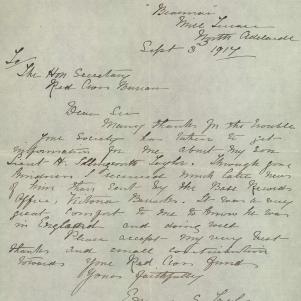 "Braemar"
Mill Terrace
North Adelaide
Sept 3rd 1917
To
The Hon Secretary
Red Cross Bureau
Dear Sir
Many thanks for the trouble
your Society has taken to get
information for me about my son
Lieut H. Taylor. Through your
kindness I received much later news
of him than sent by the Base Records
Office, Victoria Barracks. It was a very
great comfort to me to know he was
in England and doing well
Please accept my very best
thanks and small contribution
towards your Red Cross fund
Yours faithfully
Taylor